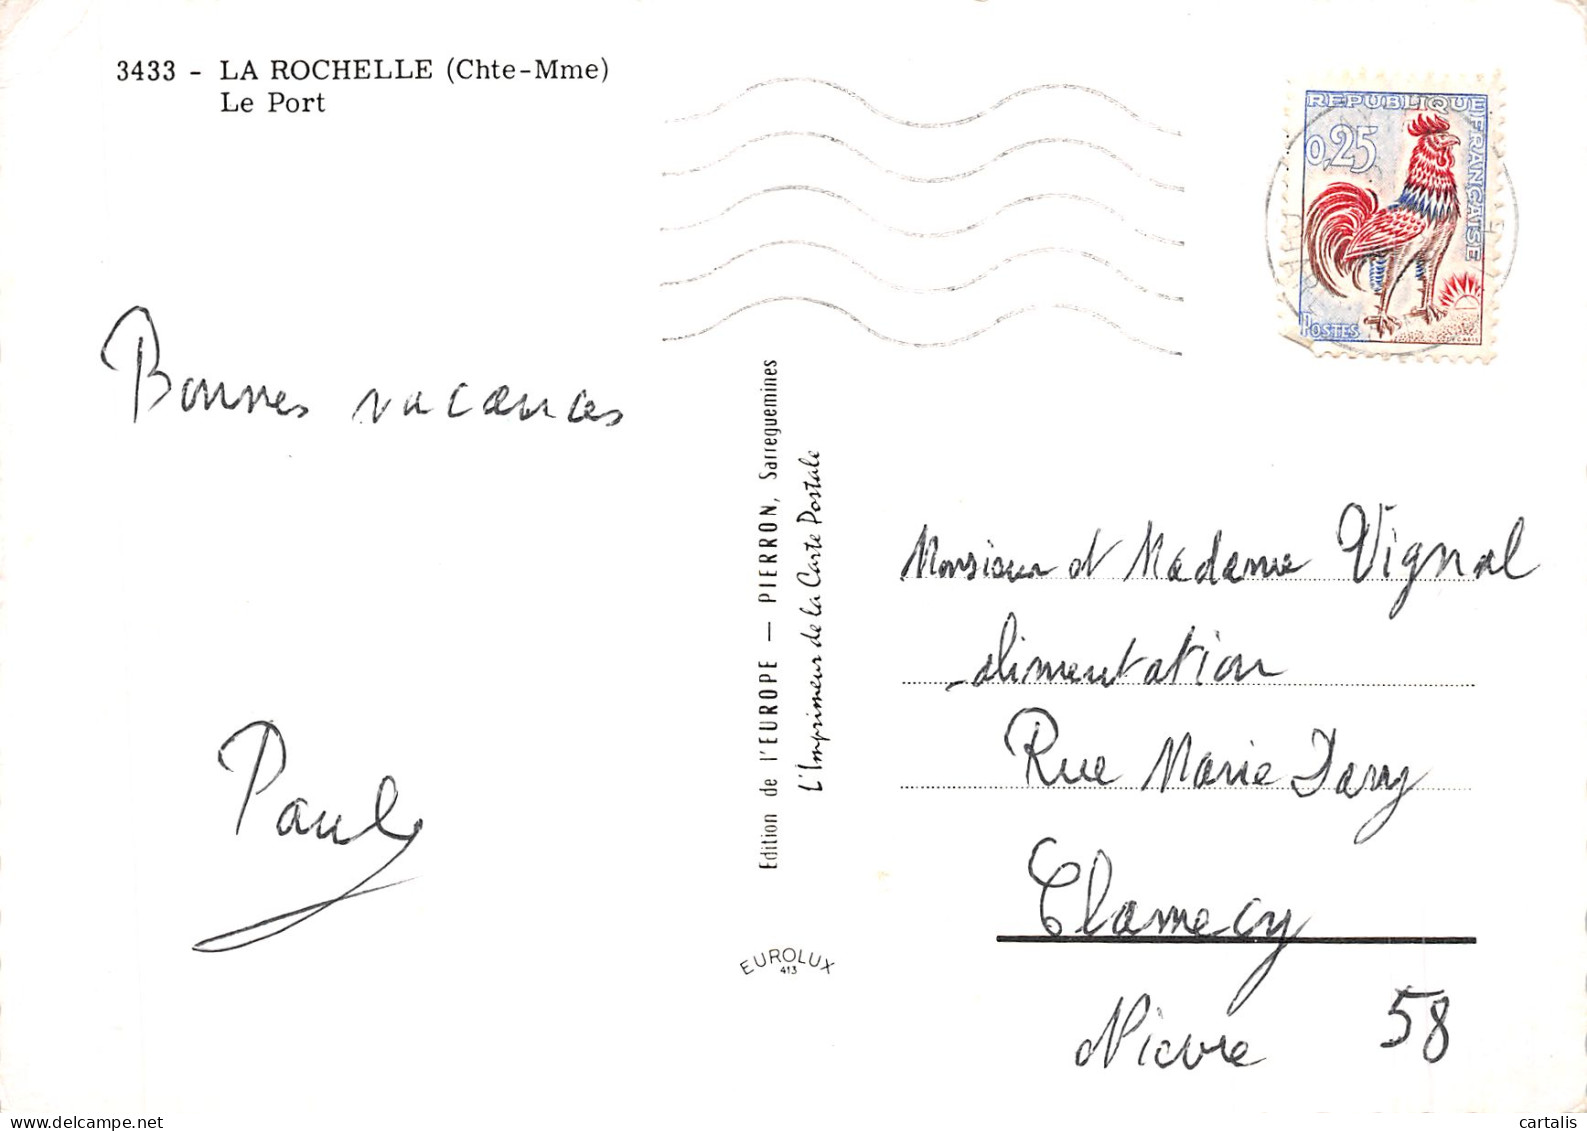 3433 - LA ROCHELLE (Chte-Mme)
Le Port
REPUBLIQUE FRANÇAISE
0,25
POSTES
Bonnes vacances
Paul
Edition de l'EUROPE — PIERRON, Sarreguemines
L'Imprimeur de la Carte Postale
EUROLUX
413
Monsieur et Madame Vignal
alimentation
Rue Marie Davy
Clamecy
Nièvre 58
cartalis